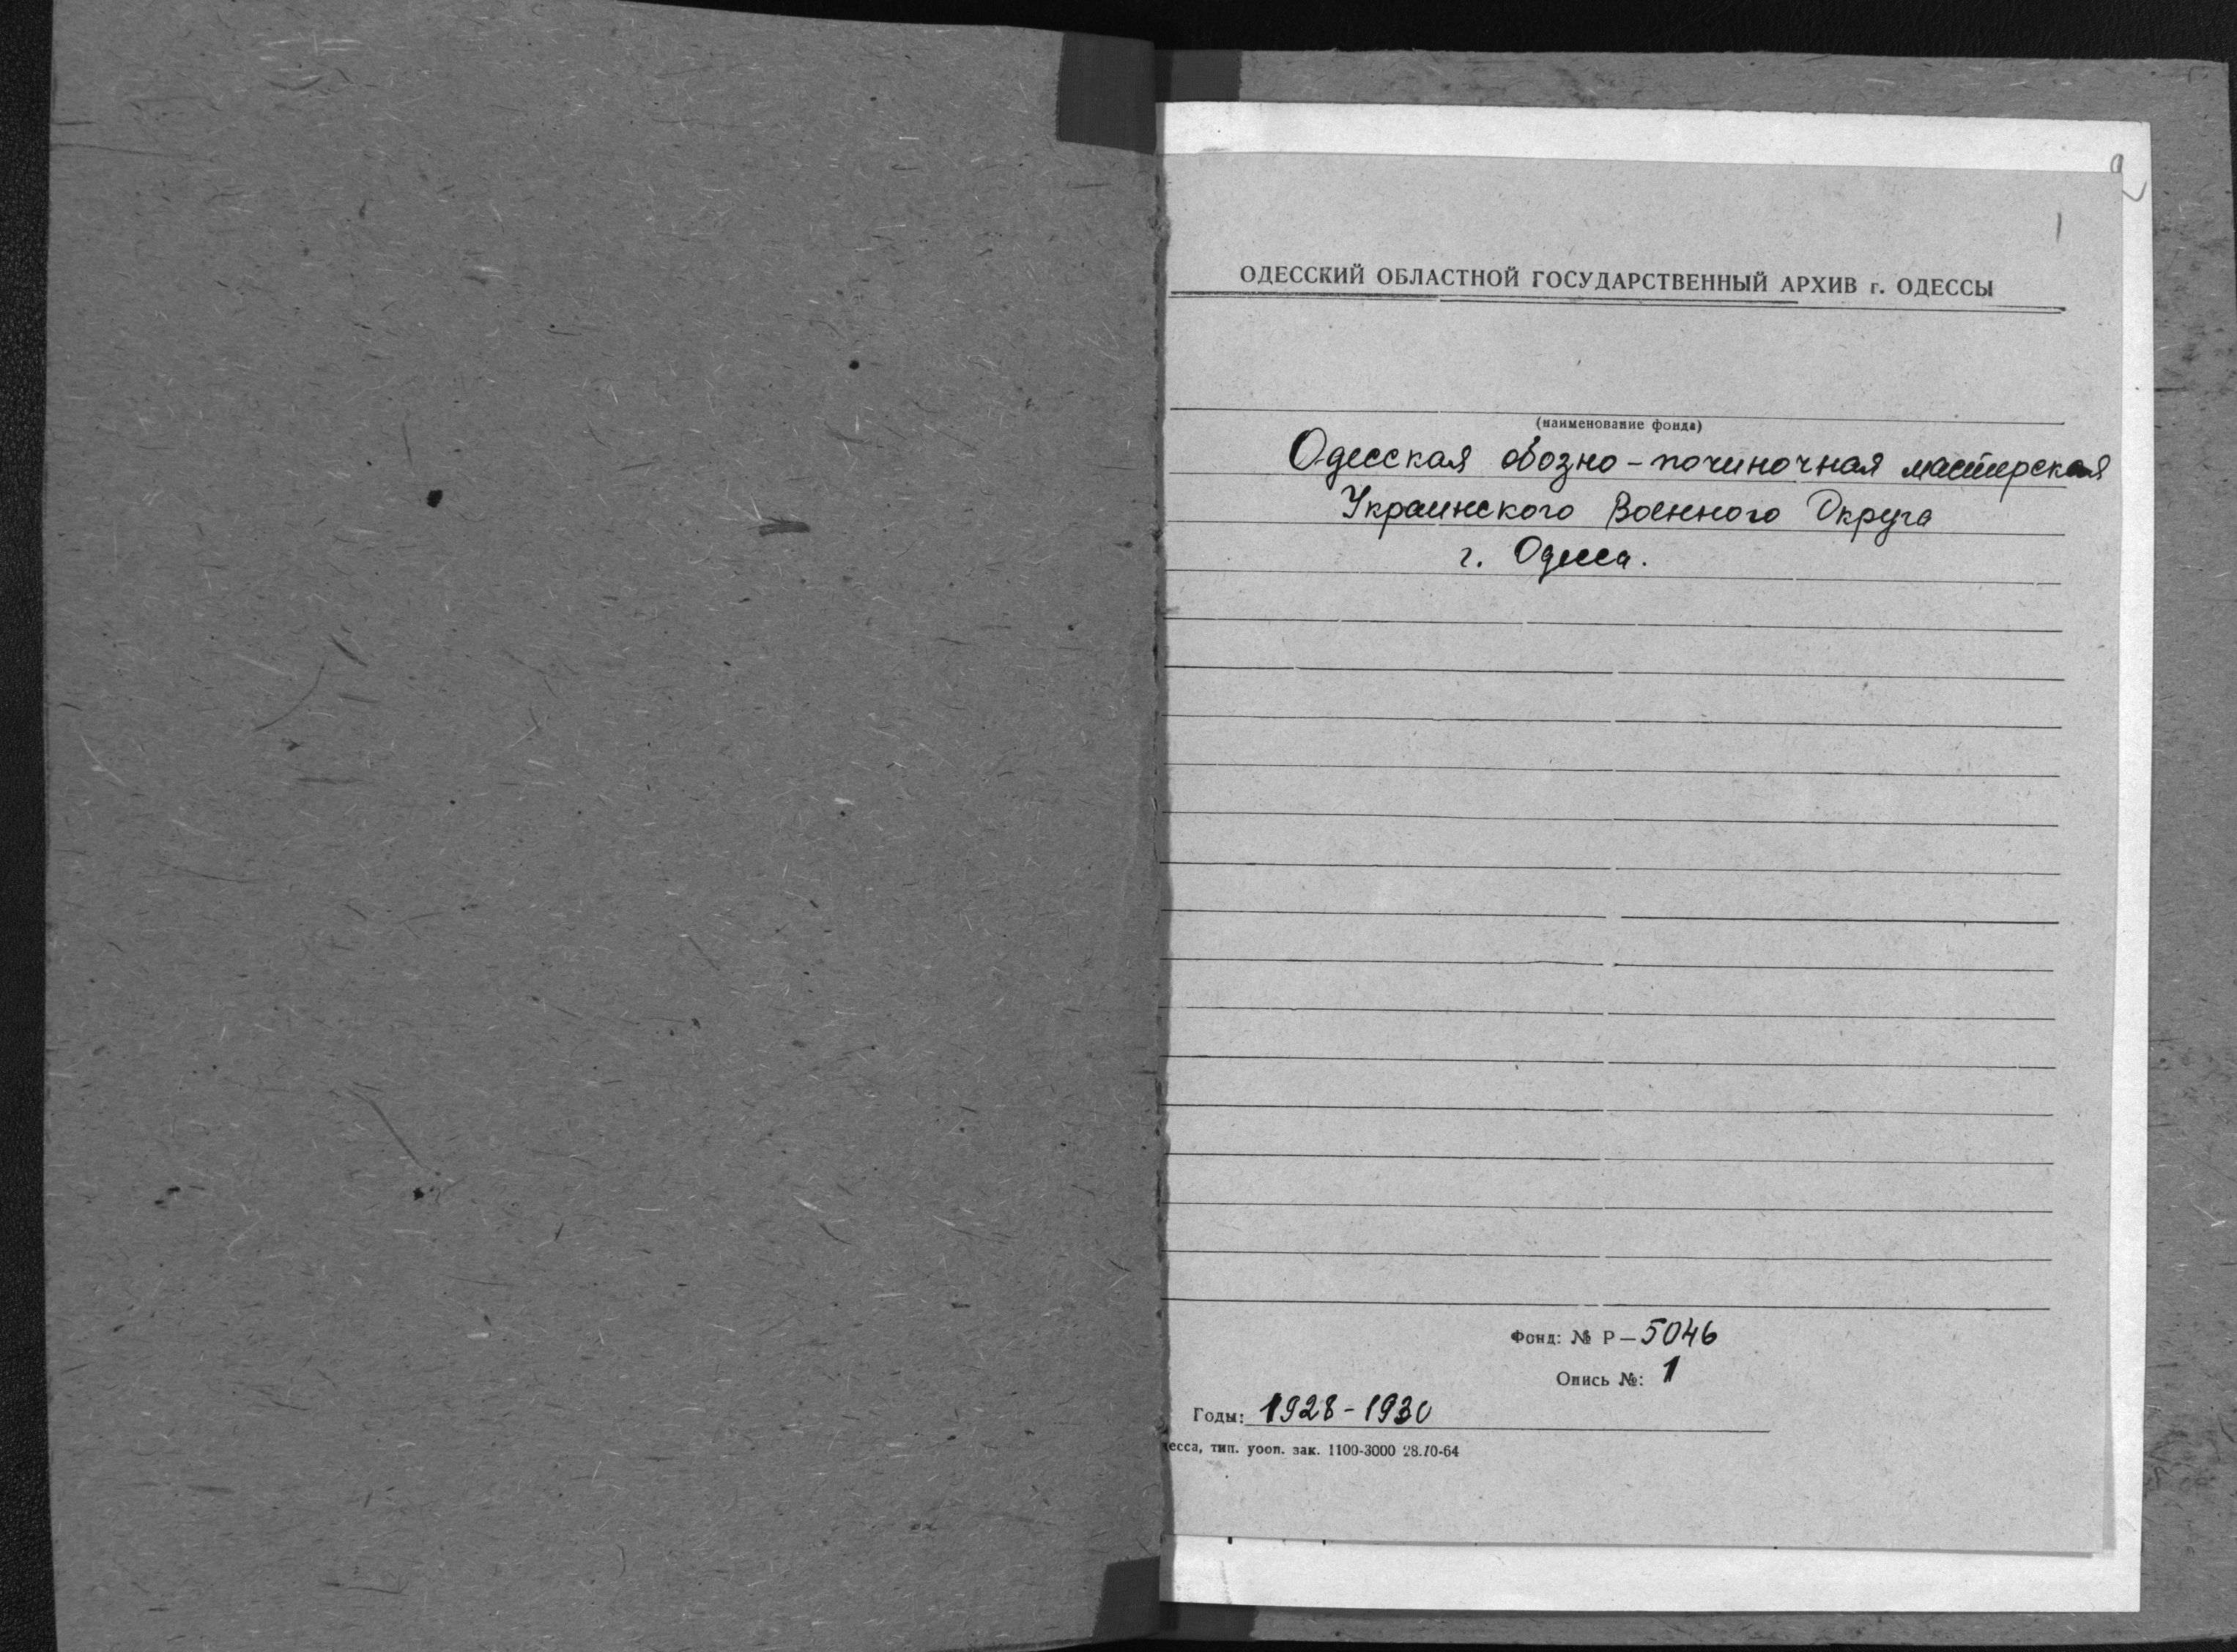 1
ОДЕССКИЙ ОБЛАСТНОЙ ГОСУДАРСТВЕННЫЙ АРХИВ г. ОДЕССЫ
(наименование фонда)
Одесская обозно-починочная мастерская
Украинского Военного Округа
г. Одесса.
Фонд: № Р—5046
Опись №: 1
Годы: 1928-1930
десса, тип. уооп. зак. 1100-3000 28.10-64